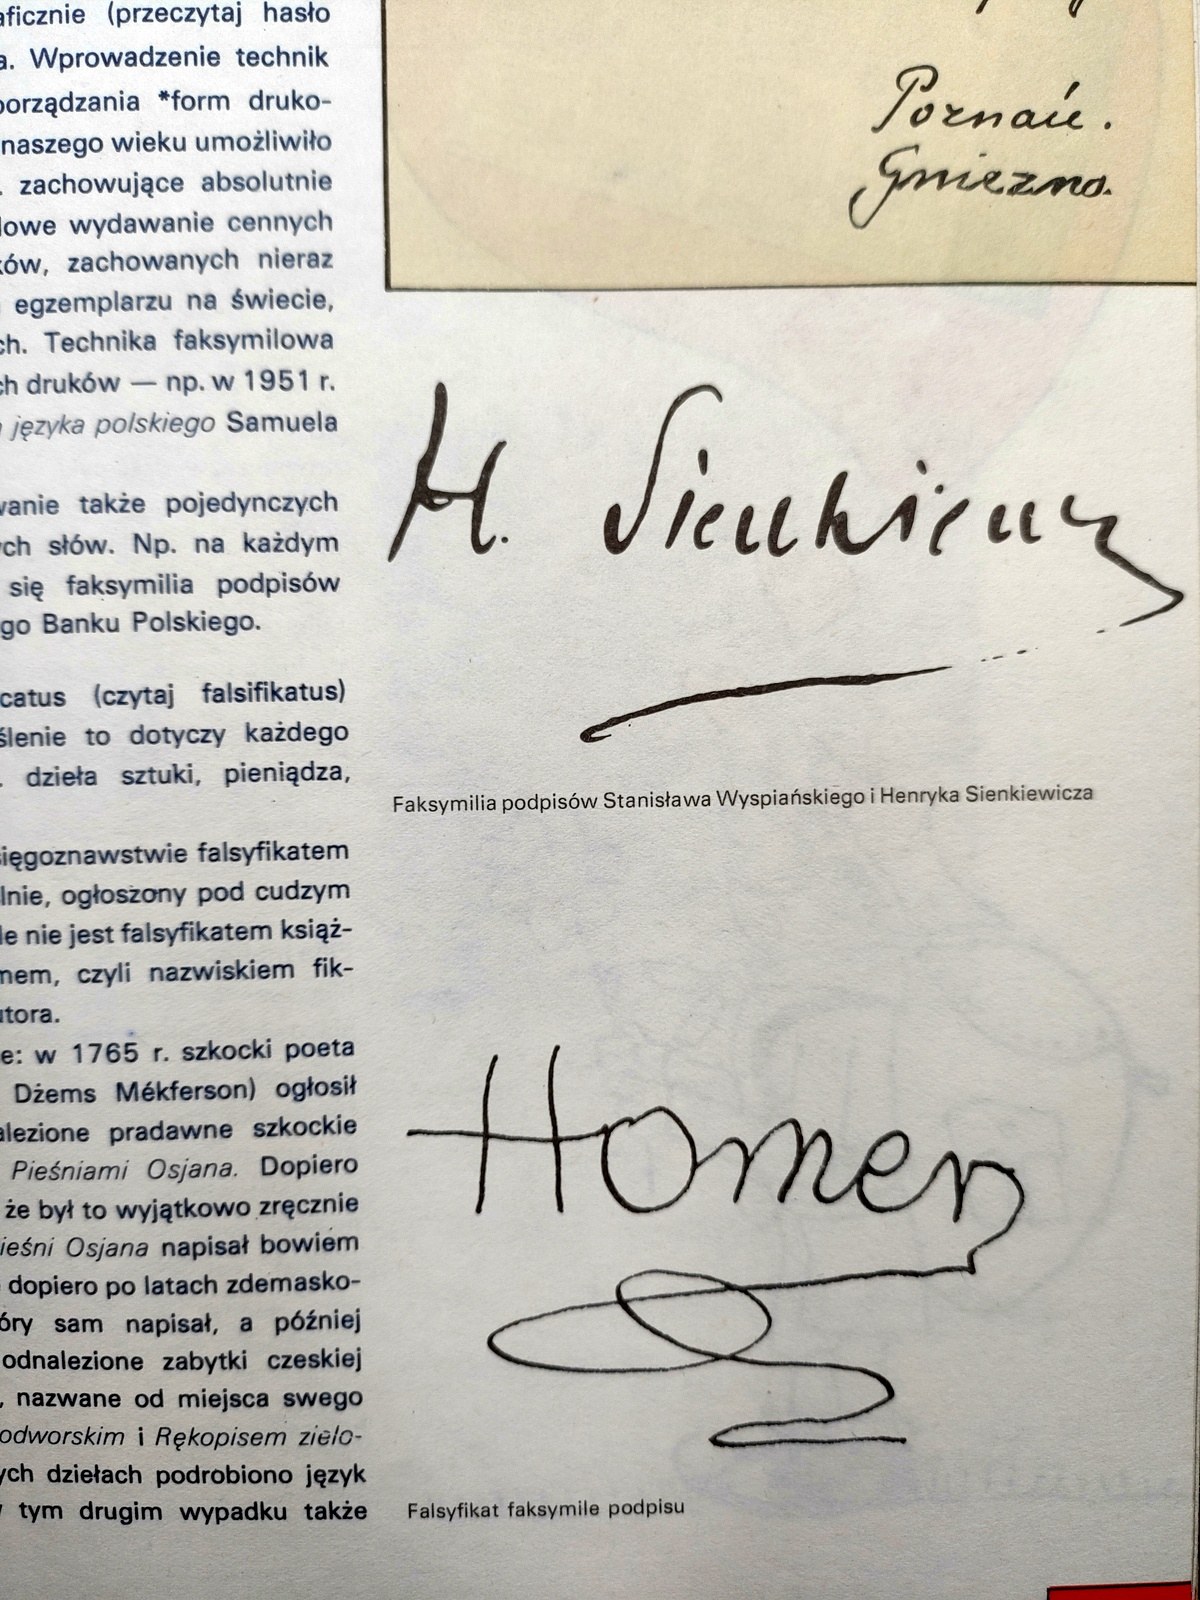 aficznie (przeczytaj hasło
a. Wprowadzenie technik
porządzania *form druko-
naszego wieku umożliwiło
. zachowujące absolutnie
lowe wydawanie cennych
ków, zachowanych nieraz
egzemplarzu na świecie,
ch. Technika faksymilowa
ch druków — np. w 1951 r.
języka polskiego Samuela
wanie także pojedynczych
ych słów. Np. na każdym
się faksymilia podpisów
go Banku Polskiego.
catus (czytaj falsifikatus)
ślenie to dotyczy każdego
. dzieła sztuki, pieniądza,
sięgoznawstwie falsyfikatem
lnie, ogłoszony pod cudzym
le nie jest falsyfikatem książ-
mem, czyli nazwiskiem fik-
utora.
e: w 1765 r. szkocki poeta
Dżems Mékferson) ogłosił
alezione pradawne szkockie
Pieśniami Osjana. Dopiero
że był to wyjątkowo zręcznie
ieśni Osjana napisał bowiem
dopiero po latach zdemasko-
óry sam napisał, a później
odnalezione zabytki czeskiej
, nazwane od miejsca swego
odworskim i Rękopisem zielo-
ych dziełach podrobiono język
tym drugim wypadku także
Poznań.
Gniezno.
H. Sienkiewicz
Faksymilia podpisów Stanisława Wyspiańskiego i Henryka Sienkiewicza
Homer
Falsyfikat faksymile podpisu